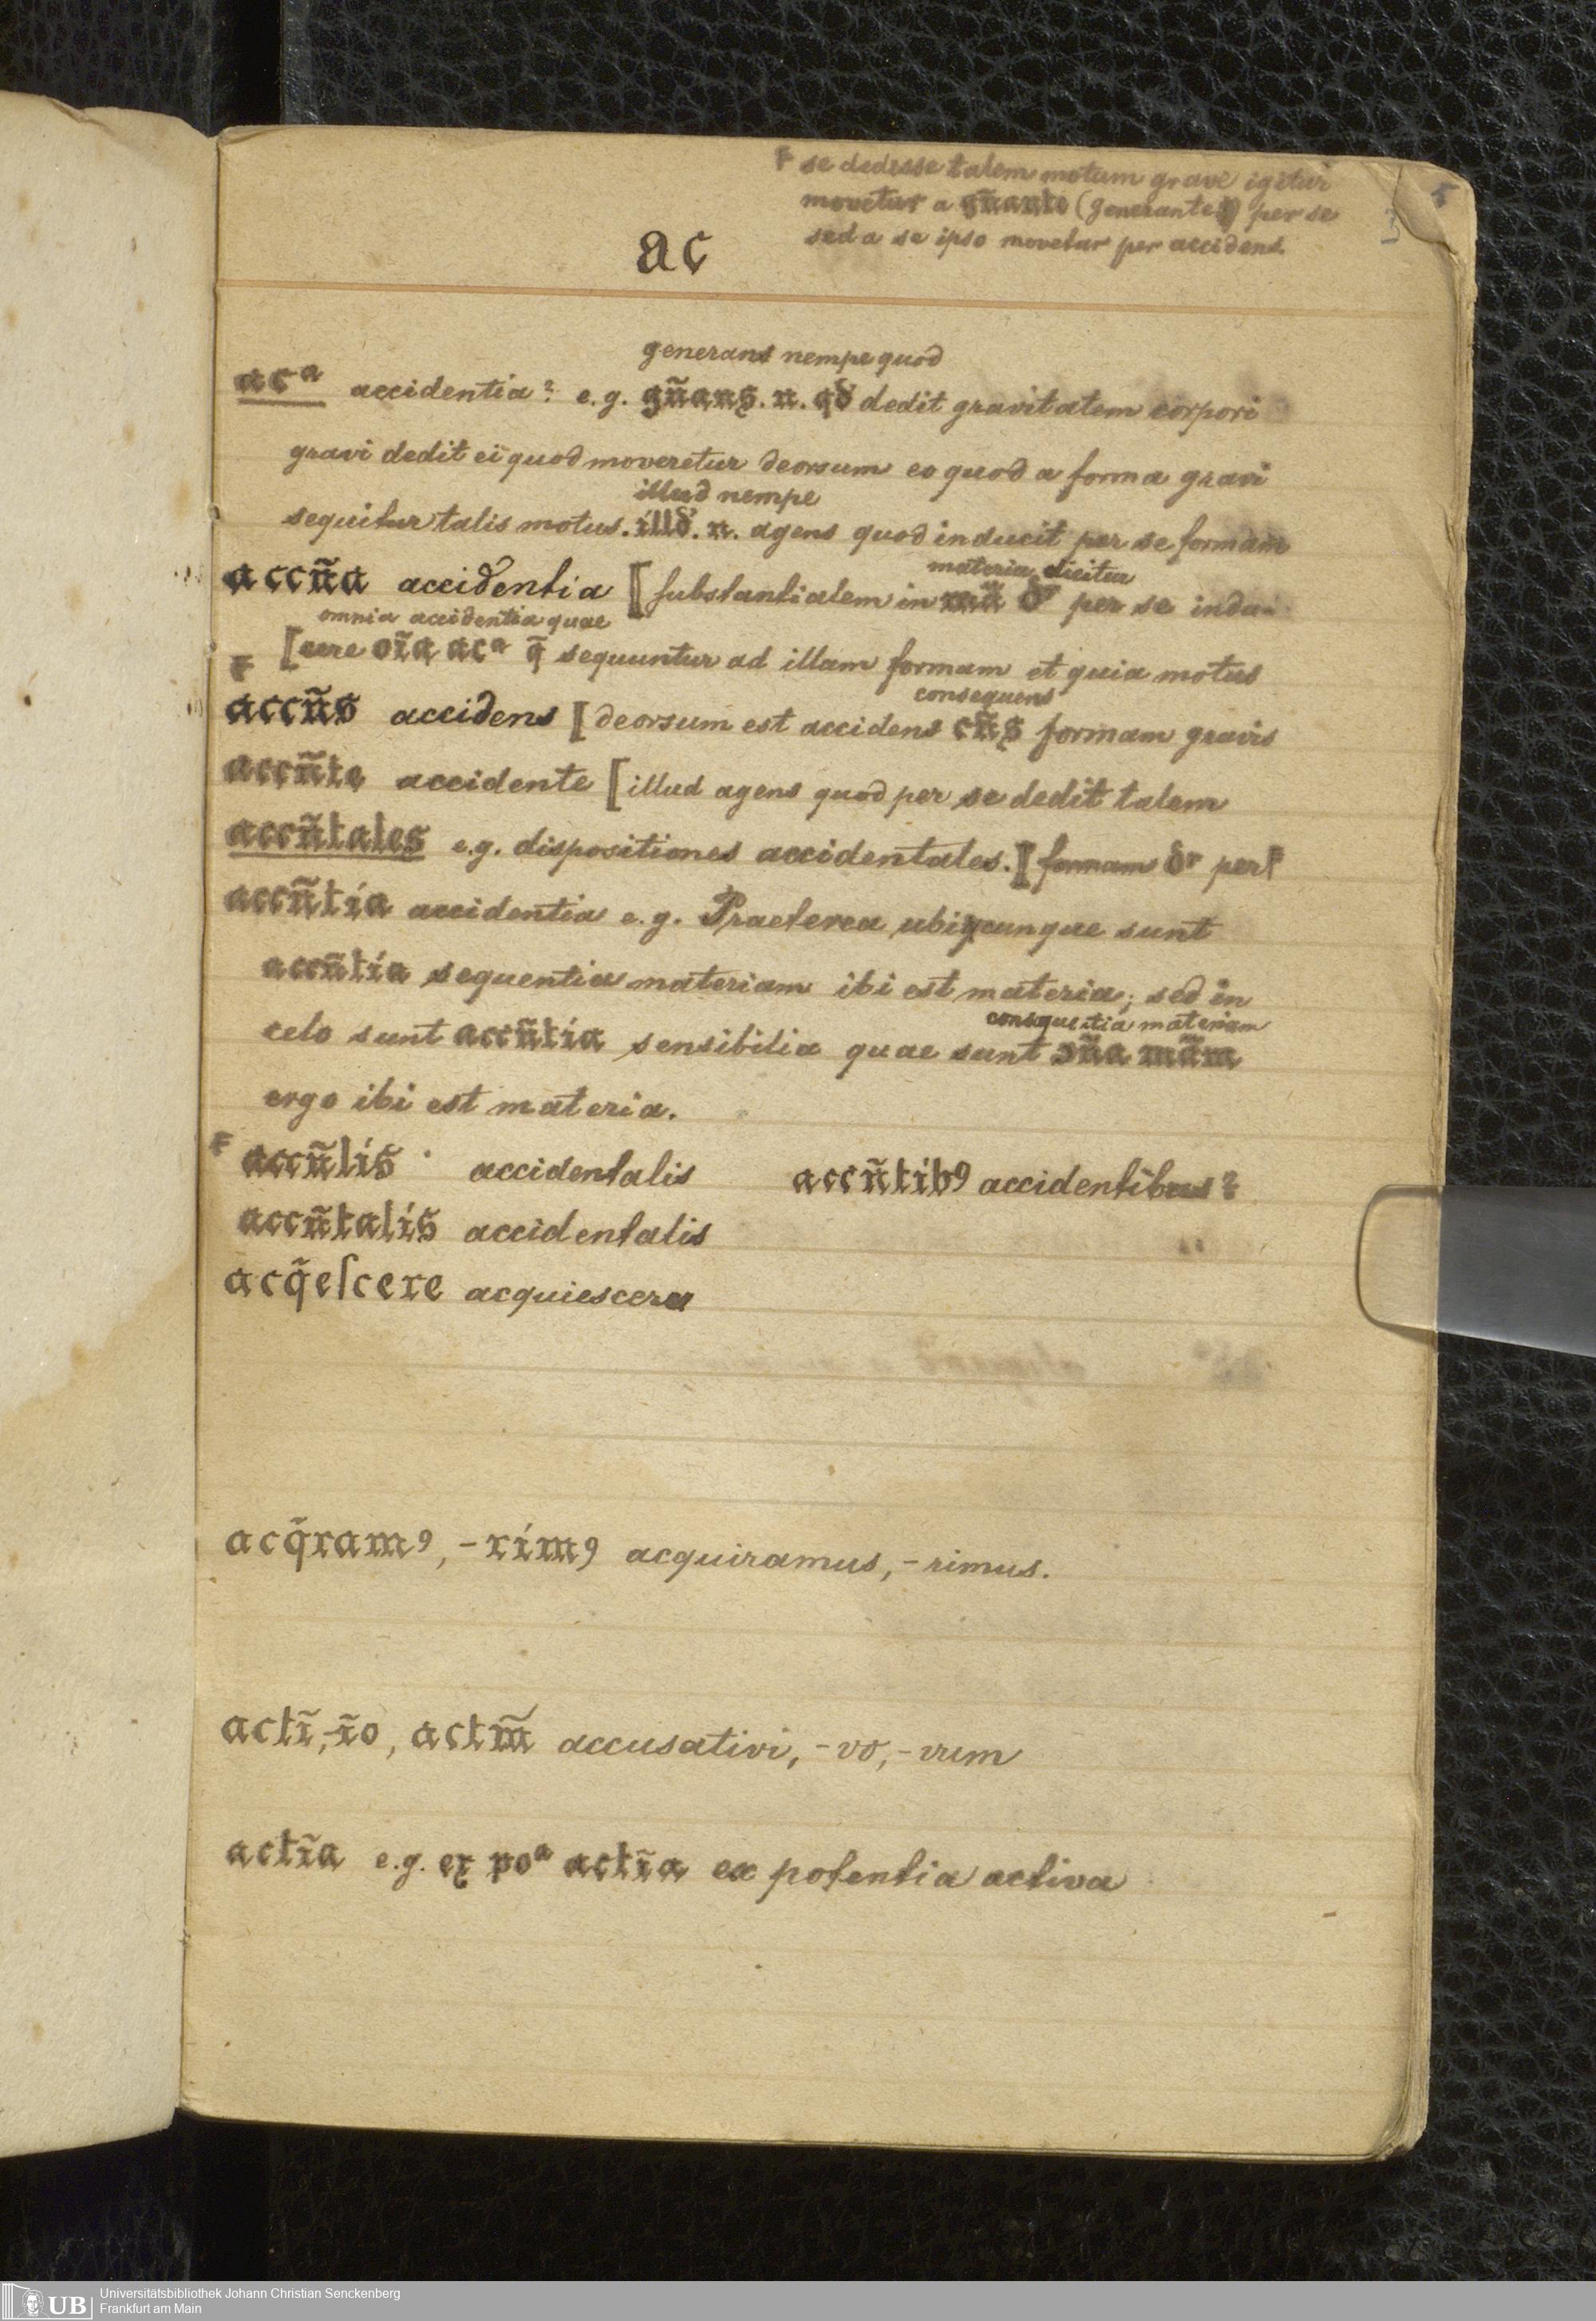 F se dedesse talem motum grave igitur
movetur a gñante (generante) per se
sed a se ipso movetur per accidens.
3
ac
generans nempe quod
acᵃ accidentia? e.g. gñans. n. qð dedit gravitatem corpori
gravi dedit ei quod moveretur deorsum eo quod a forma gravi
illud nempe
sequitur talis motus. illð. n. agens quod inducit per se formam
materia dicitur
accña accidentia [substantialem in mã ðʳ per se indu-
omnia accidentia quae
F [cere oĩa acᵃ q̃ sequuntur ad illam formam et quia motus
consequens
accñs accidens [deorsum est accidens cñs formam gravis
accñte accidente [illud agens quod per se dedit talem
accñtales e.g. dispositiones accidentales.][formam ðʳ per F
accñtia accidentia e.g. Praeterea ubicunque sunt
accñtia sequentia materiam ibi est materia; sed in
consequentia materiam
celo sunt accñtia sensibilia quae sunt ɔña mãm
ergo ibi est materia.
F accñlis accidentalis accñtibꝯ accidentibus?
accñtalis accidentalis
acq̃eſcere acquiescere
acq̃ramꝯ, -rimꝯ acquiramus, -rimus.
actĩ, -ĩo, actm̃ accusativi, -vo, -vum
actĩa e.g. ex poᵃ actĩa ex potentia activa
UB Universitätsbibliothek Johann Christian Senckenberg
Frankfurt am Main